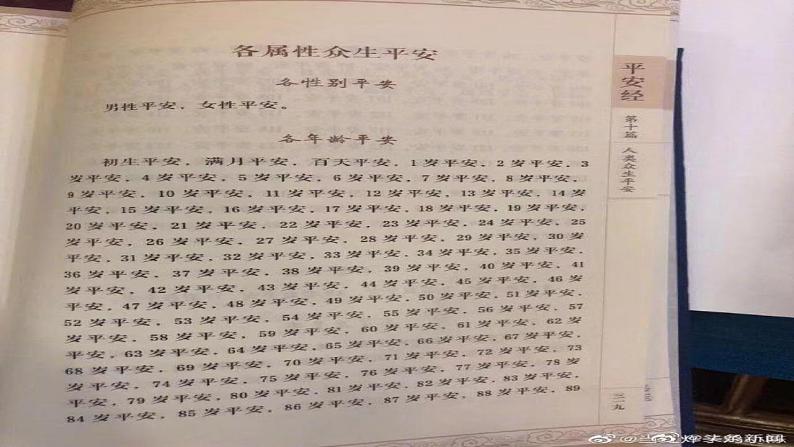 各属性众生平安
各性别平安
男性平安，女性平安。
各年龄平安
初生平安，满月平安，百天平安，1岁平安，2岁平安，3
岁平安，4岁平安，5岁平安，6岁平安，7岁平安，8岁平安，
9岁平安，10岁平安，11岁平安，12岁平安，13岁平安，14岁
平安，15岁平安，16岁平安，17岁平安，18岁平安，19岁平安，
20岁平安，21岁平安，22岁平安，23岁平安，24岁平安，25
岁平安，26岁平安，27岁平安，28岁平安，29岁平安，30岁
平安，31岁平安，32岁平安，33岁平安，34岁平安，35岁平安，
36岁平安，37岁平安，38岁平安，39岁平安，40岁平安，41
岁平安，42岁平安，43岁平安，44岁平安，45岁平安，46岁
平安，47岁平安，48岁平安，49岁平安，50岁平安，51岁平安，
52岁平安，53岁平安，54岁平安，55岁平安，56岁平安，57
岁平安，58岁平安，59岁平安，60岁平安，61岁平安，62岁
平安，63岁平安，64岁平安，65岁平安，66岁平安，67岁平安，
68岁平安，69岁平安，70岁平安，71岁平安，72岁平安，73
岁平安，74岁平安，75岁平安，76岁平安，77岁平安，78岁
平安，79岁平安，80岁平安，81岁平安，82岁平安，83岁平安，
84岁平安，85岁平安，86岁平安，87岁平安，88岁平安，89
平安经
第十篇 人类众生平安
三一九
新闻